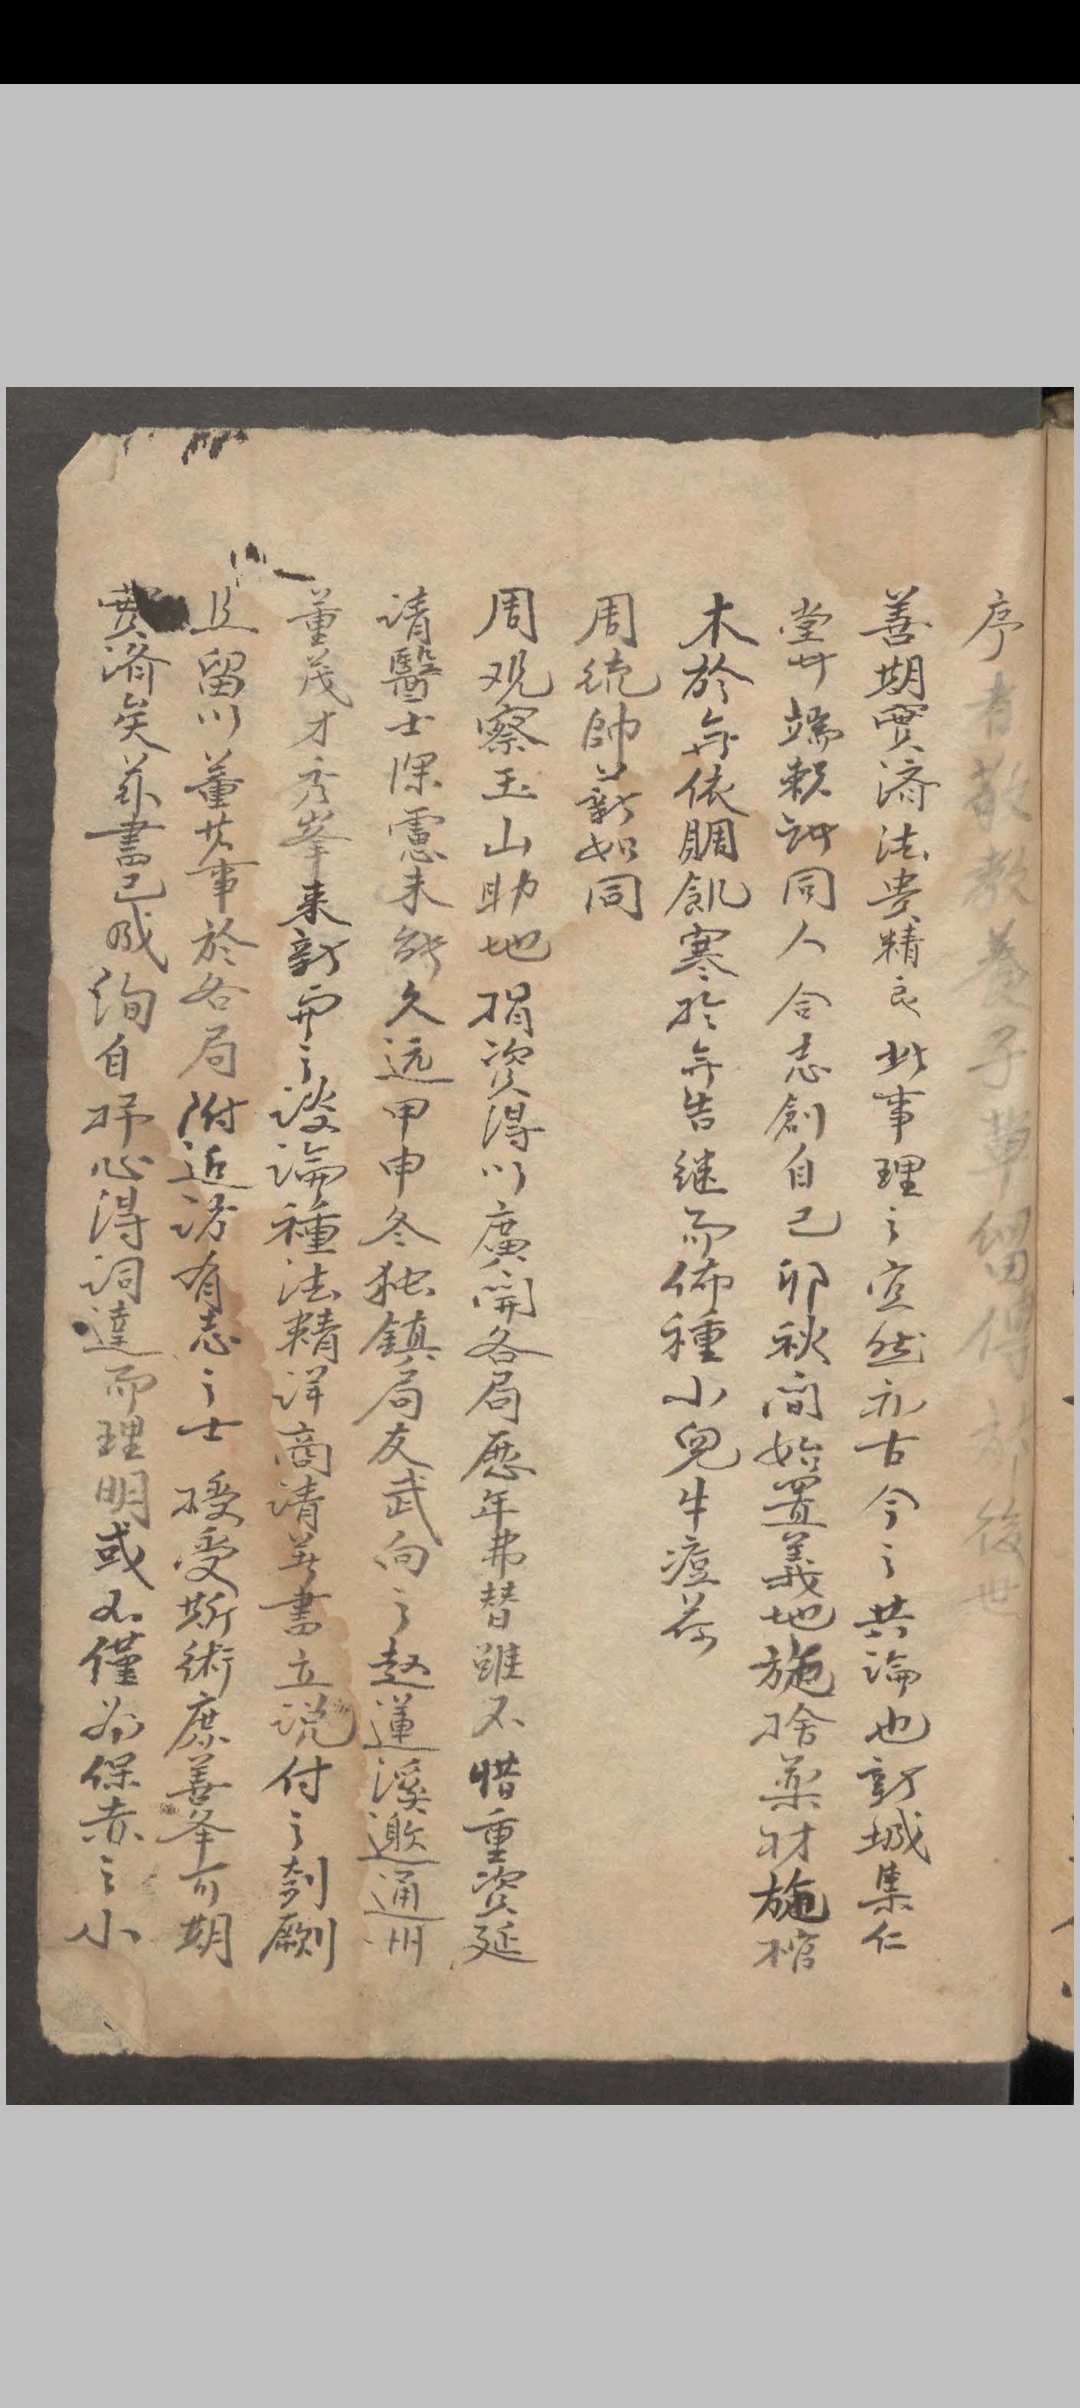 序者敬教養子草留傳於後世
善期實濟法貴精良此事理之宜然亦古今之共論也新城集仁
堂廾端賴諸同人合志創自己卯秋间始置義地施捨药材施棺
木於無依賙飢寒於無告继而佈種小兒牛痘蒙
周统帥薪如同
周观察玉山助地捐资得以廣開各局歷年弗替雖不惜重资延
请醫士深慮未能久远甲申冬独鎮局友武向之赵蓮溪邀通州
董茂才秀峯来新面之談論種法精详商请著書立说付之剞劂
且留以董其事於各局附近访有志之士授受斯術庶善举可期
實济矣兹書已成洵自抒心得词達而理明或不僅為保赤之小